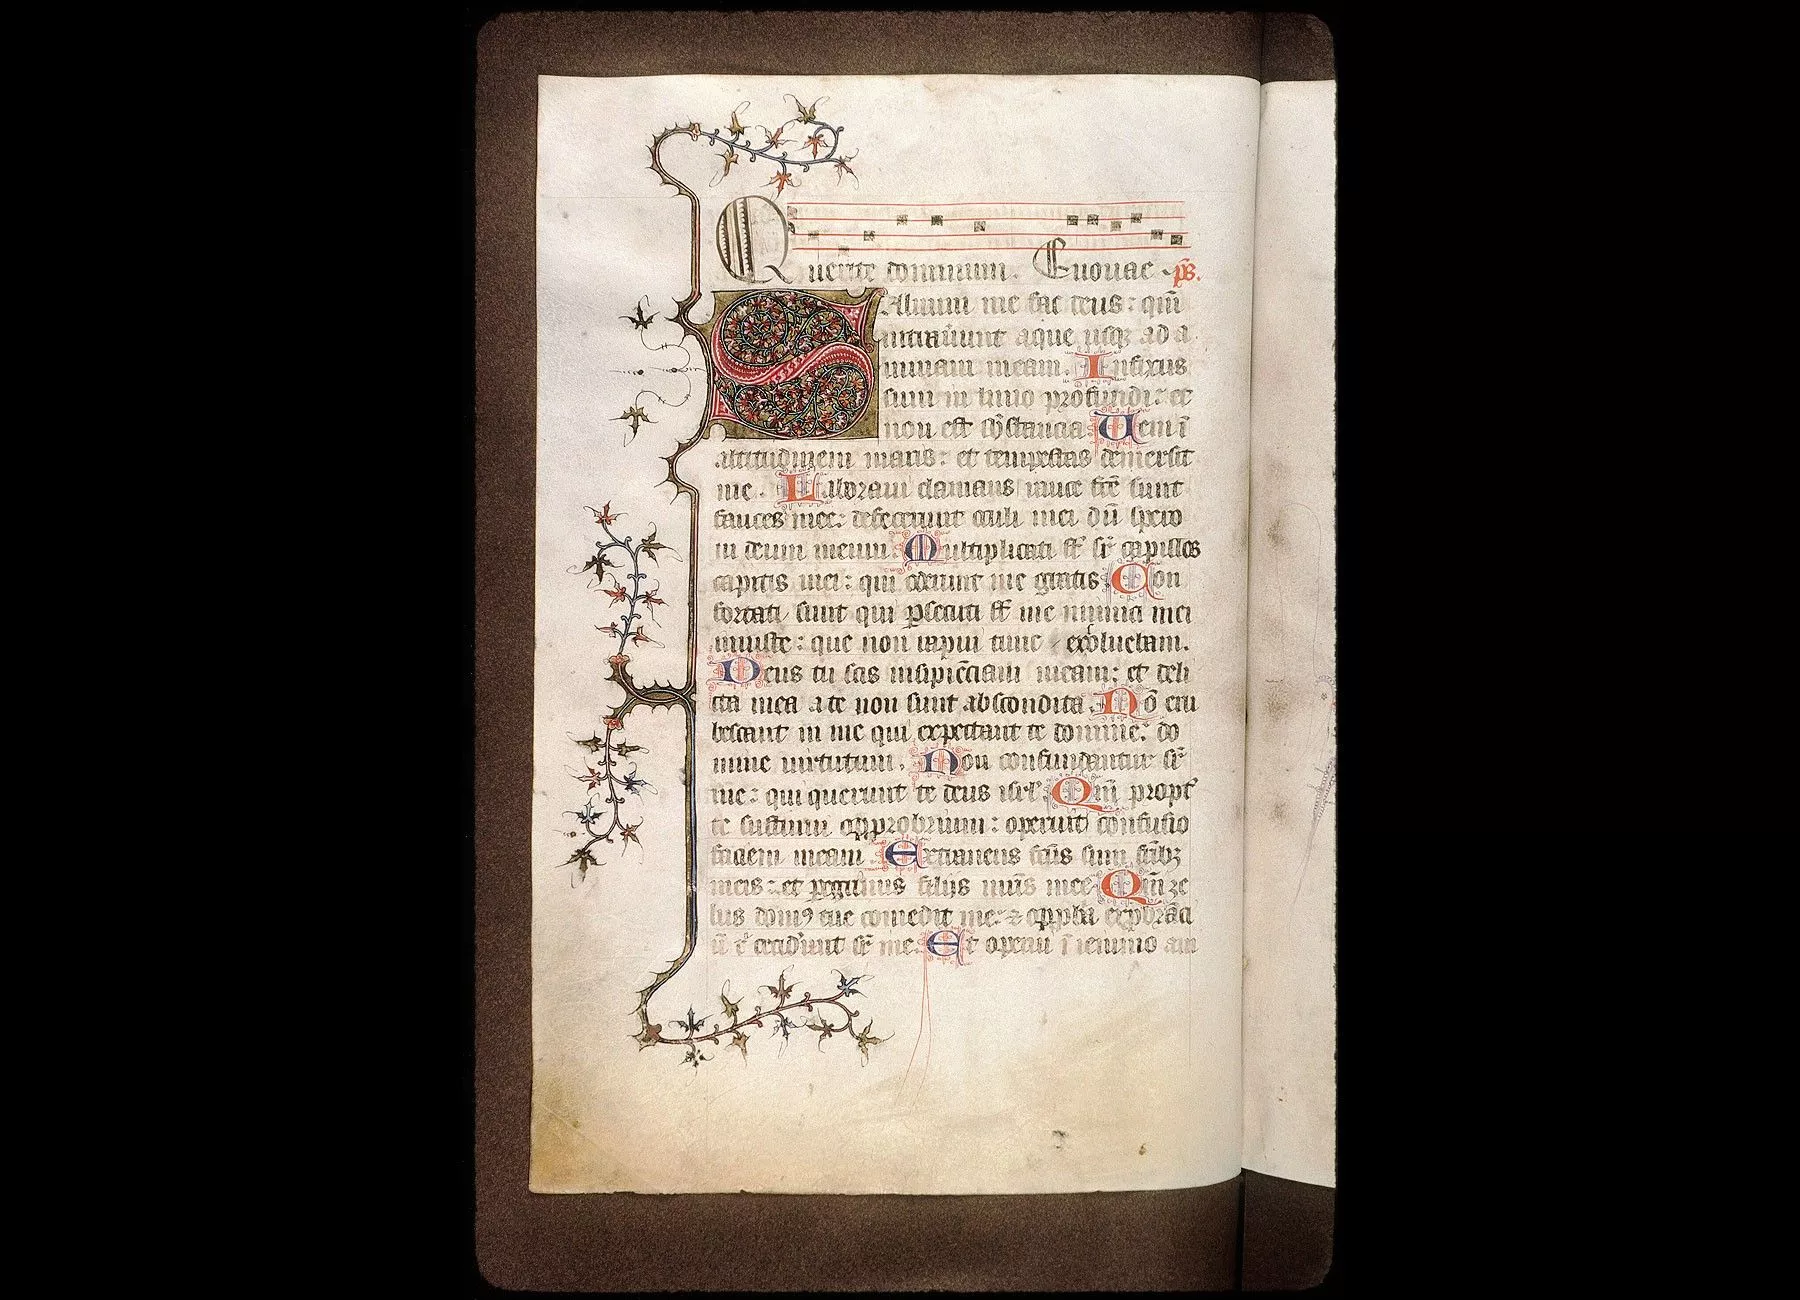 Querite dominum. Euouae. ps.
Saluum me fac deus: qm̄
intrauerunt aque usq; ad a
nimam meam. Infixus
sum in limo profundi: et
non est sb̄stancia Veni ī
altitudinem maris: et tempestas demersit
me. Laboraui clamans rauce fc̄e sunt
fauces mee: defecerunt oculi mei dū spero
in deum meum. Multiplicati st̄ sr̄ capillos
capitis mei: qui oderunt me gratis. Con
fortati sunt qui p̄secuti st̄ me inimici mei
iniuste: que non rapui tunc exoluebam.
Deus tu scis insipiēciam meam: et deli
cta mea a te non sunt abscondita. Nō eru
bescant in me qui expectant te domine: do
mine uirtutum. Non confundantur sr̄
me: qui querunt te deus isrl̄. Qm̄ propt̄
te sustinui opprobrium: operuit confusio
faciem meam. Extraneus fc̄us sum fr̄ib;
meis: et p̄egrinus filijs mr̄is mee. Qm̄ ze
lus dom9 tue comedit me: et opp̄bria exprobrāci
ū t̄ ceciderunt sr̄ me. Et operui ī ieiunio am